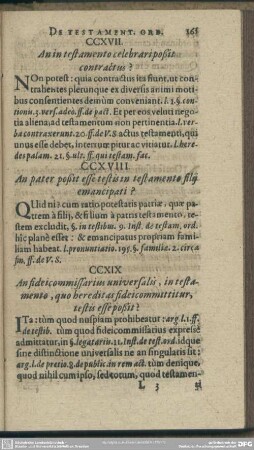 DE TESTAMENT. ORD. 165
CCXVII.
An in testamento celebrari possit
contractus?
NOn potest: quia contractus ita fiunt, ut con-
trahentes plerunque ex diversis animi motibus
consentientes demùm conveniant. l. 1. §. con-
tionu. 3. vers. adeò. ff. de pact. Et per eos veluti nego-
tia aliena, ad testamentorum non pertinentia. l. ver-
ba contraxerunt. 20. ff. de V. S actus testamenti, qui
unus esse debet, interrumpitur ac vitiatur. l. here-
des palam. 21. §. ult. ff. qui testam. fac.
CCXVIII
An pater possit esse testis in testamento filij
emancipati?
QUid ni? cum ratio potestatis patriæ, quæ pa-
trem à filij, & filium à patris testamento, te-
stem excludit, §. in testibus. 9. Inst. de testam. ord.
hîc planè esset: & emancipatus propriam fami-
liam habeat. l. pronuntiatio. 195. §. familiæ. 2. circa
fin. ff. de V. S.
CCXIX
An fideicommissarius universalis, in testa-
mento, quo hereditas fideicommittitur,
testis esse possit?
ITa: tùm quod nuspiam prohibeatur: arg. l. 1. ff.
de testib. tùm quod fideicommissarius expressè
admittatur, in §. legatariis. 11. Inst. de test. ord. idque
sine distinctione universalis ne an singularis sit:
arg. l. de pretio. 8. de public. in rem act. tùm denique,
quod nihil cum ipso, sed totum, quod testamen-
L 3 ti